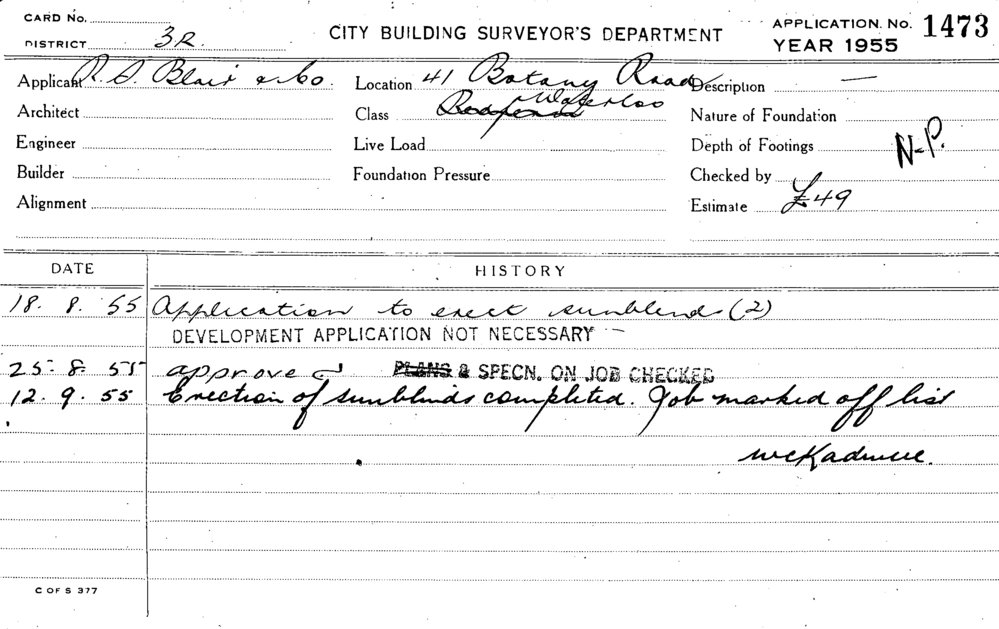 CARD No.
DISTRICT 3R.
CITY BUILDING SURVEYOR'S DEPARTMENT
APPLICATION. No. 1473
YEAR 1955
Applicant R. S. Blair & Co. Location 41 Botany Road Description —
Architect Class Redfern Waterloo Nature of Foundation
Engineer Live Load Depth of Footings N-P.
Builder Foundation Pressure Checked by
Alignment Estimate £49
DATE HISTORY
18. 8. 55 Application to erect sunblends (2)
DEVELOPMENT APPLICATION NOT NECESSARY —
25. 8. 55 approved PLANS & SPECN. ON JOB CHECKED
12. 9. 55 Erection of sunblinds completed. Job marked off list
C OF S 377